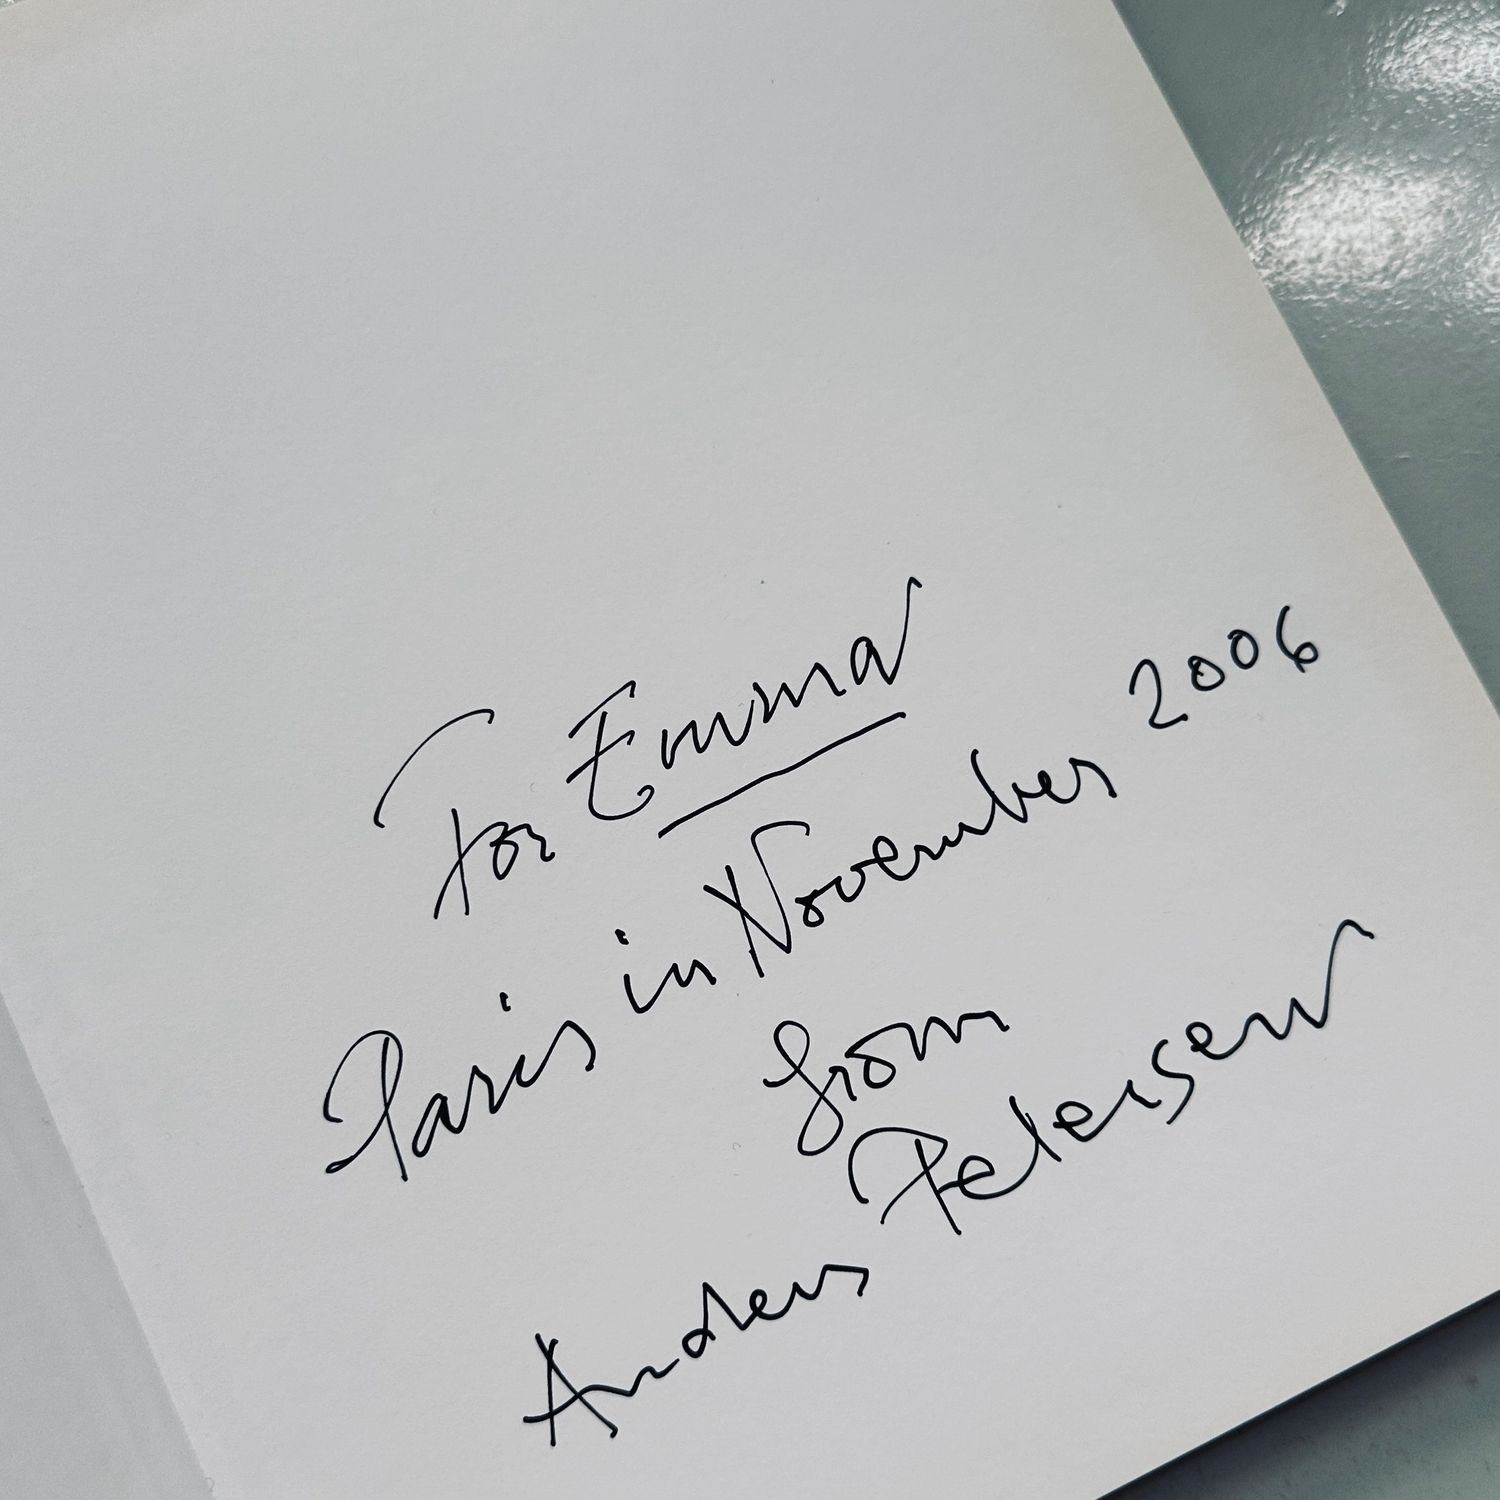 For Emma
Paris in November 2006
from
Anders Petersen